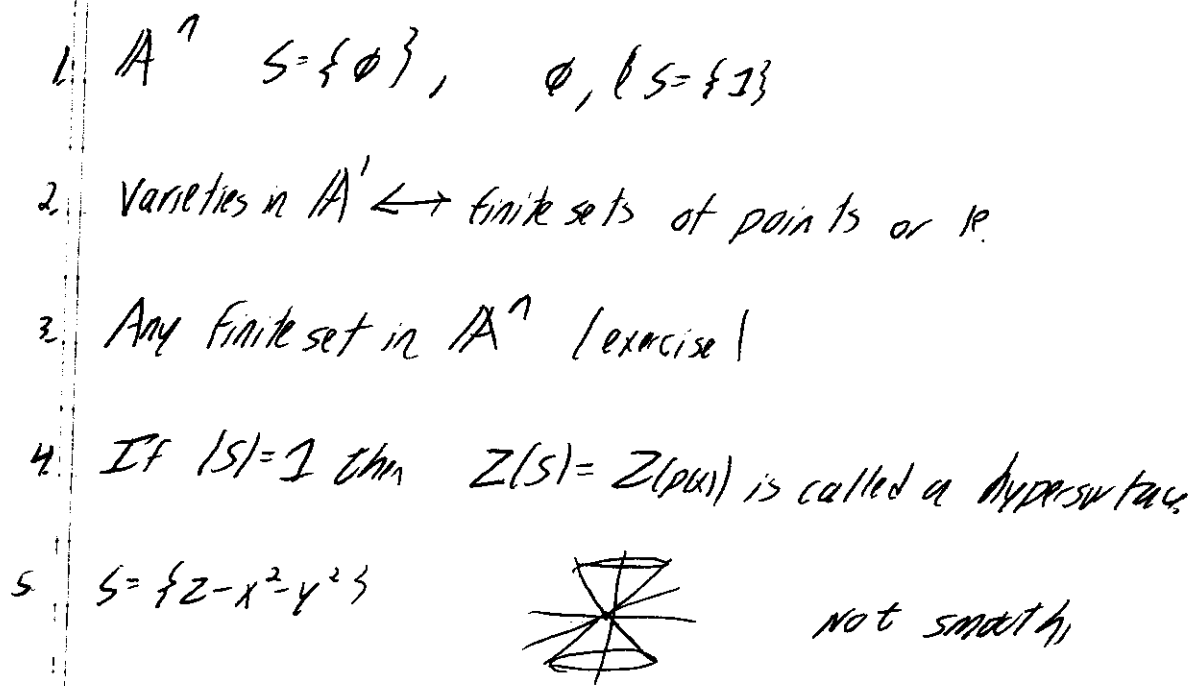 1. 𝔸ⁿ S={∅}, ∅, (S={1}
2. Varieties in 𝔸¹ ↔ finite sets of points or k.
3. Any finite set in 𝔸ⁿ (exercise)
4. If |S|=1 then Z(S)=Z(p(x)) is called a hypersurface.
5. S={z-x²-y²} Not smooth,